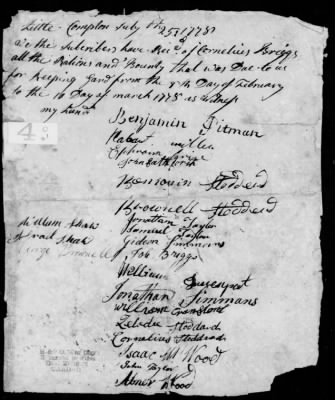 Little Compton July th 25 1778
We the Subscribers have Recd of Cornelius Briggs
all the Rations and Bounty that was Due to us
for Keeping Gard from the 8th Day of February
to the 10 Day of march 1778 as witness
my hand
Benjamin Pitman
Robert Miller
Ephraim
John
Benjamin Stoddard
Brownell Stoddard
Jonathan Taylor
William Shaw
Samuel Taylor
Israel Shaw
Gideon Simmons
Job Briggs
William Davenport
Jonathan Simmans
William
Zebedee Stoddard
Cornelius Stoddard
Isaac Wood
John Taylor
Abner Wood